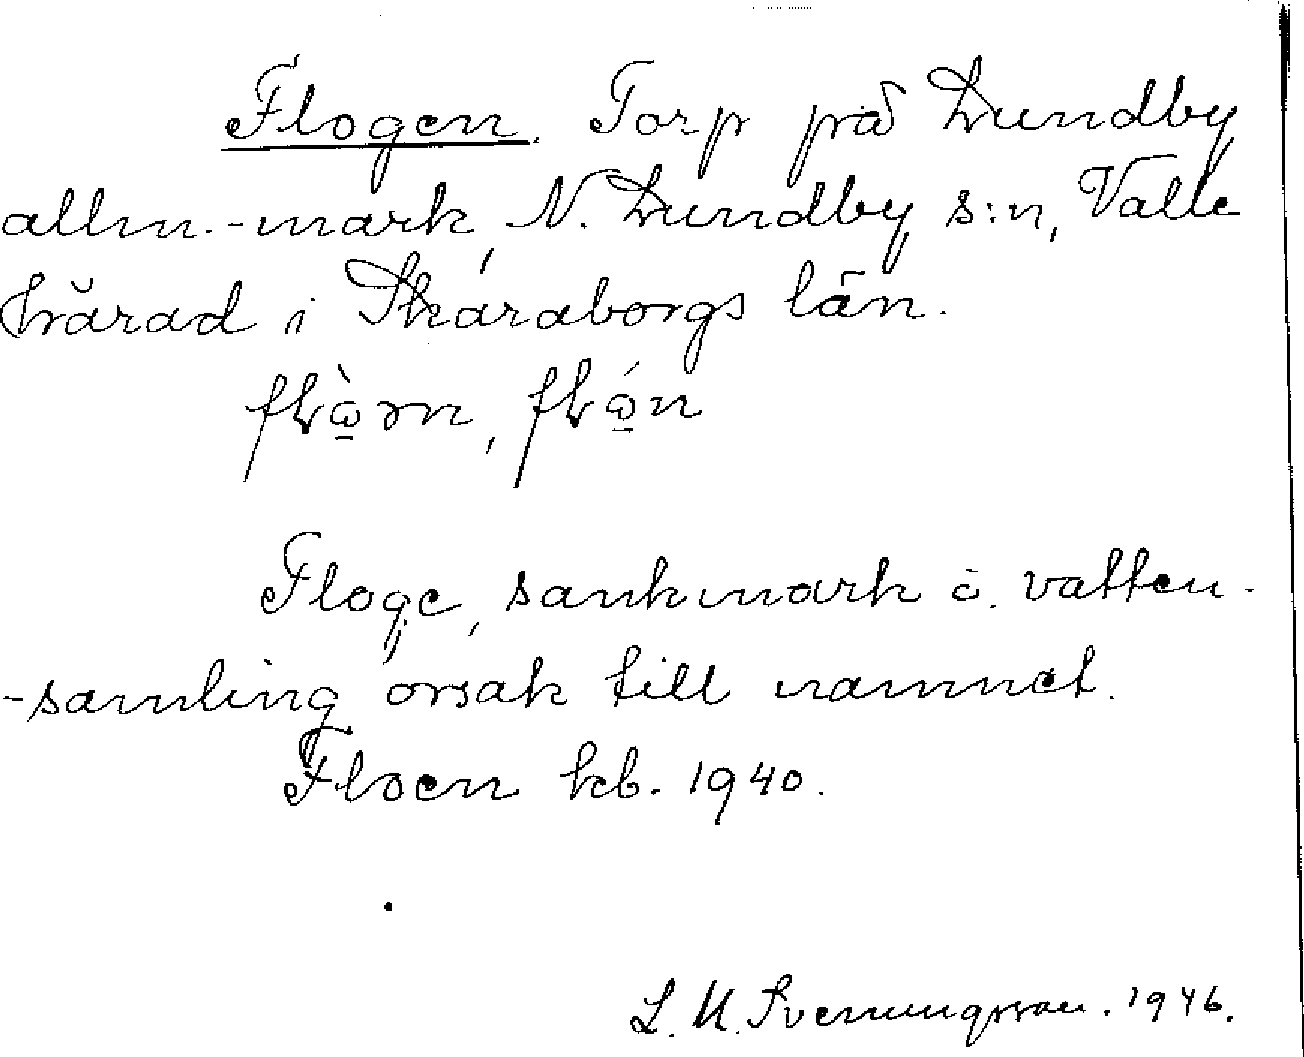 Flogen. Torp på Lundby
allm.-mark, N. Lundby s:n, Valle
härad i Skaraborgs län.
Floge, sankmark o. vatten-
-samling orsak till namnet.
Floen kb. 1940.
L. M. Svenungsson. 1946.